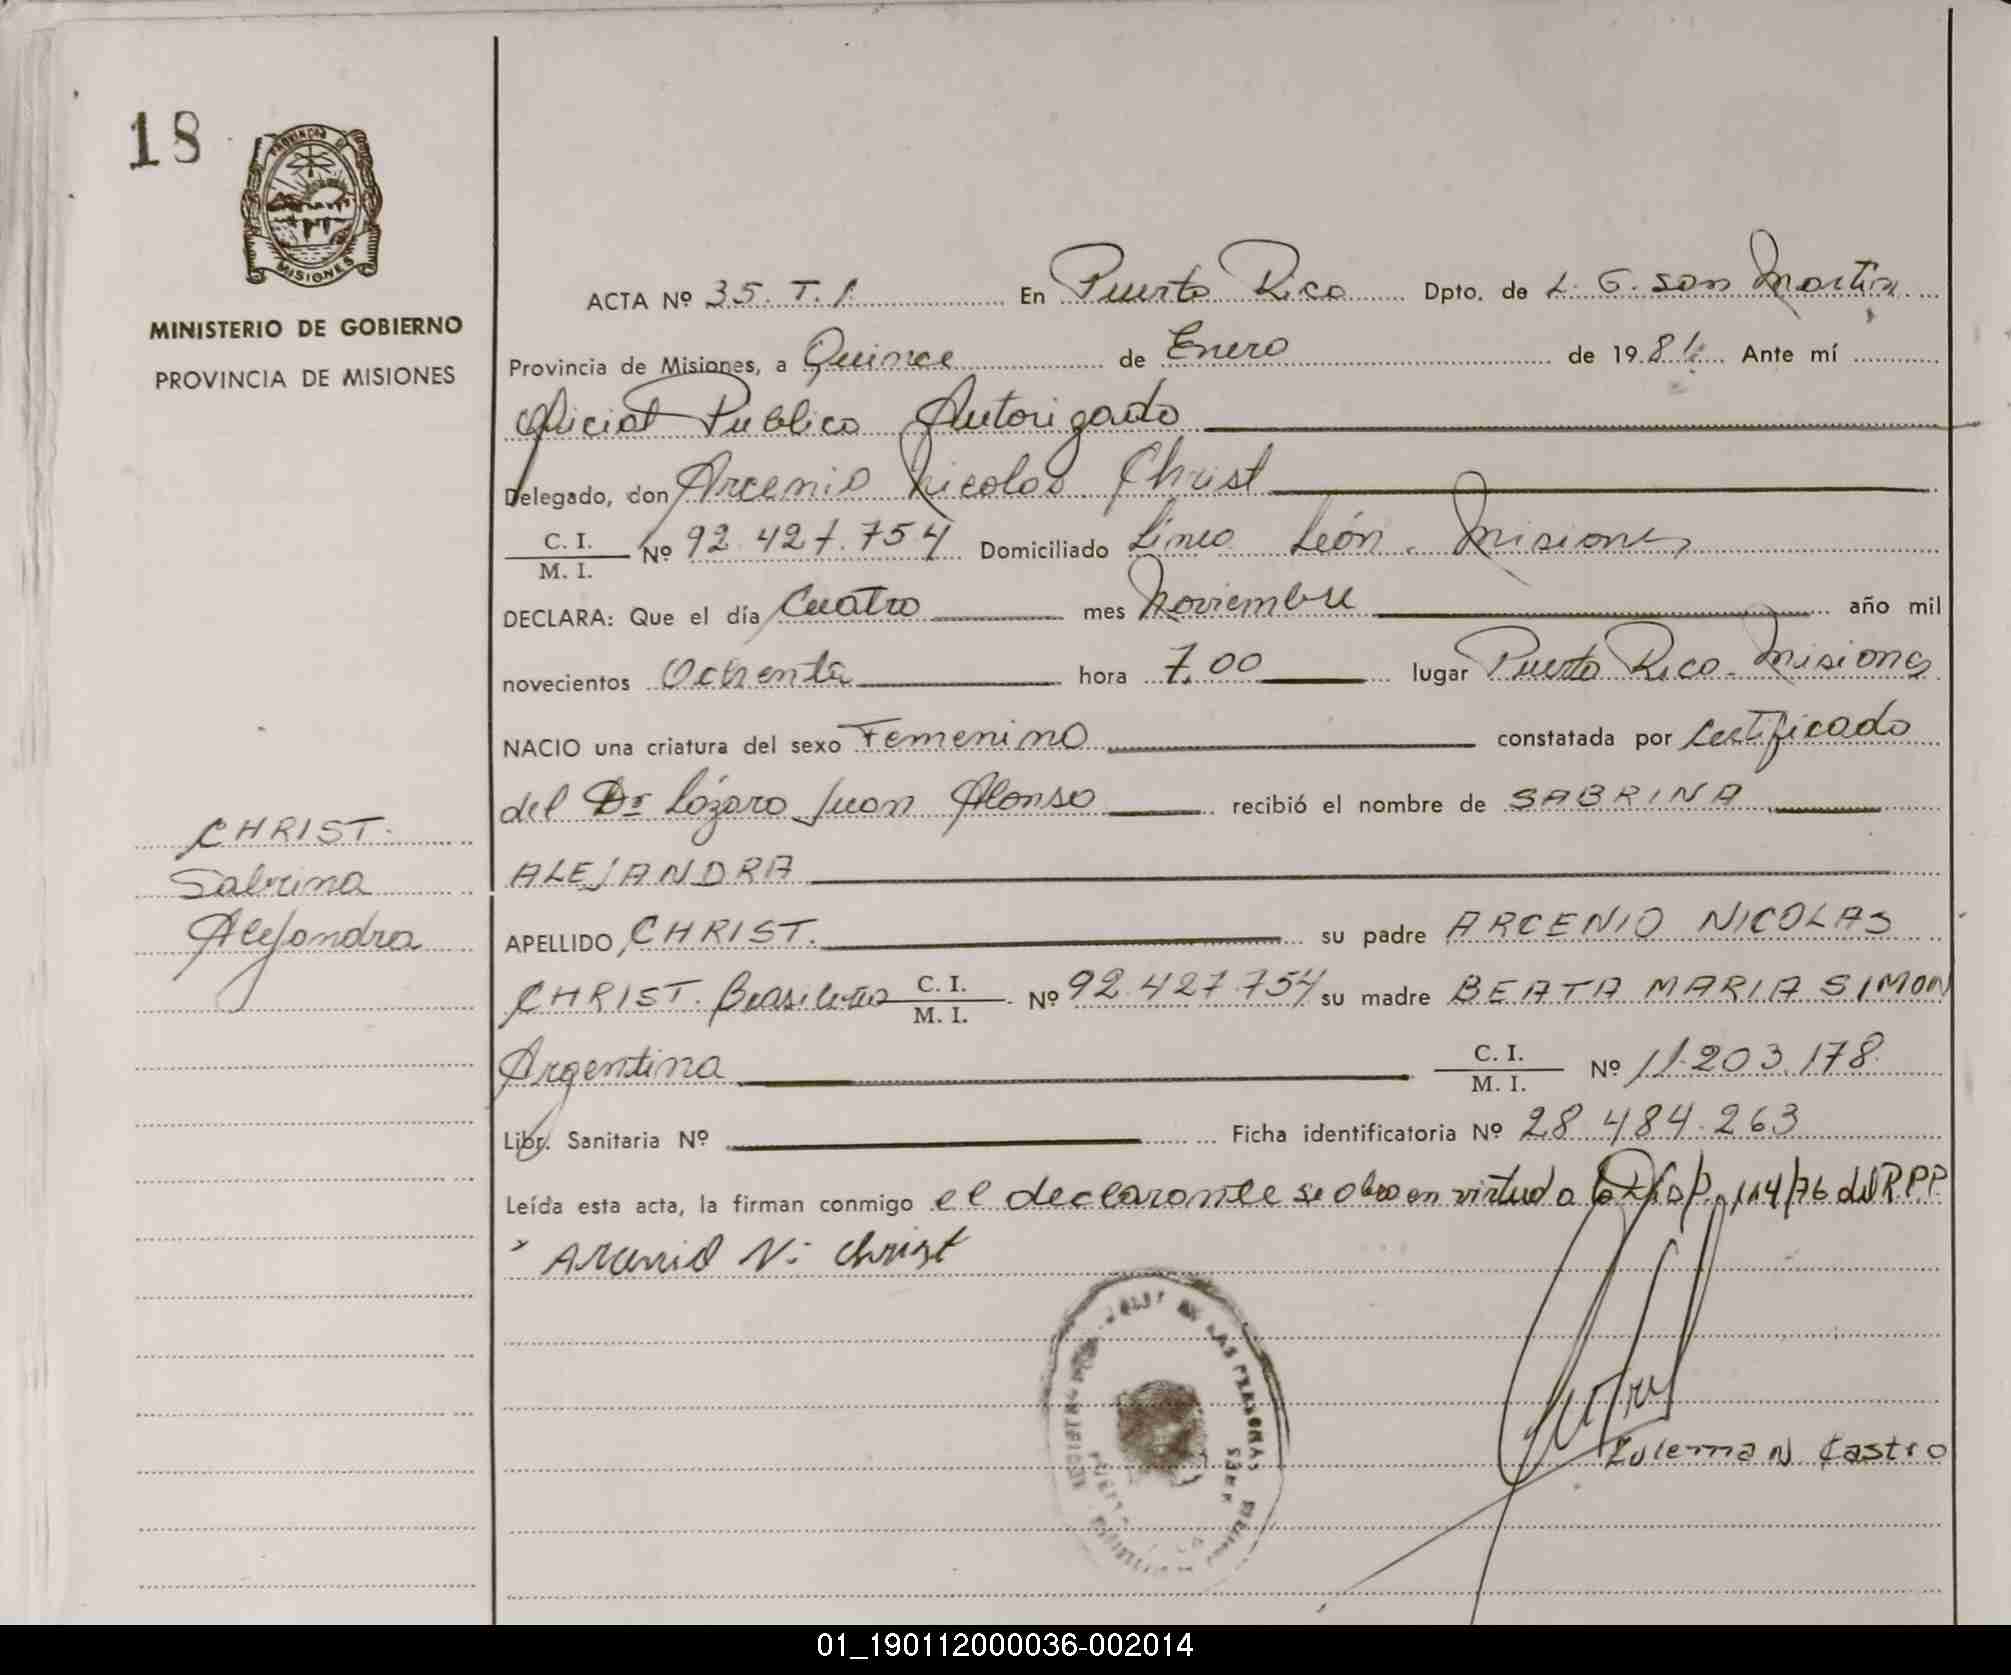 18
PROVINCIA DE
MISIONES
MINISTERIO DE GOBIERNO
PROVINCIA DE MISIONES
CHRIST.
Sabrina
Alejandra
ACTA Nº 35. T. 1. En Puerto Rico Dpto. de L. G. San Martin
Provincia de Misiones, a Quince de Enero de 1981. Ante mí
Oficial Publico Autorizado
Delegado, don Arcenio Nicolas Christ
C. I. / M. I. Nº 92.427.754 Domiciliado Línea León. Misiones
DECLARA: Que el día Cuatro mes Noviembre año mil
novecientos Ochenta hora 7.00 lugar Puerto Rico - Misiones
NACIO una criatura del sexo Femenino constatada por Certificado
del Dr Lázaro Juan Alonso recibió el nombre de SABRINA
ALEJANDRA
APELLIDO CHRIST. su padre ARCENIO NICOLAS
CHRIST. Brasileño C. I. / M. I. Nº 92.427.754 su madre BEATA MARIA SIMON
Argentina C. I. / M. I. Nº 11.203.178
Libr. Sanitaria Nº Ficha identificatoria Nº 28.484.263
Leída esta acta, la firman conmigo el declarante se obro en virtud a la 114/76 del R.P.P
Arcenio N. Christ
DE LAS PERSONAS
Zulema N. Castro
01_190112000036-002014